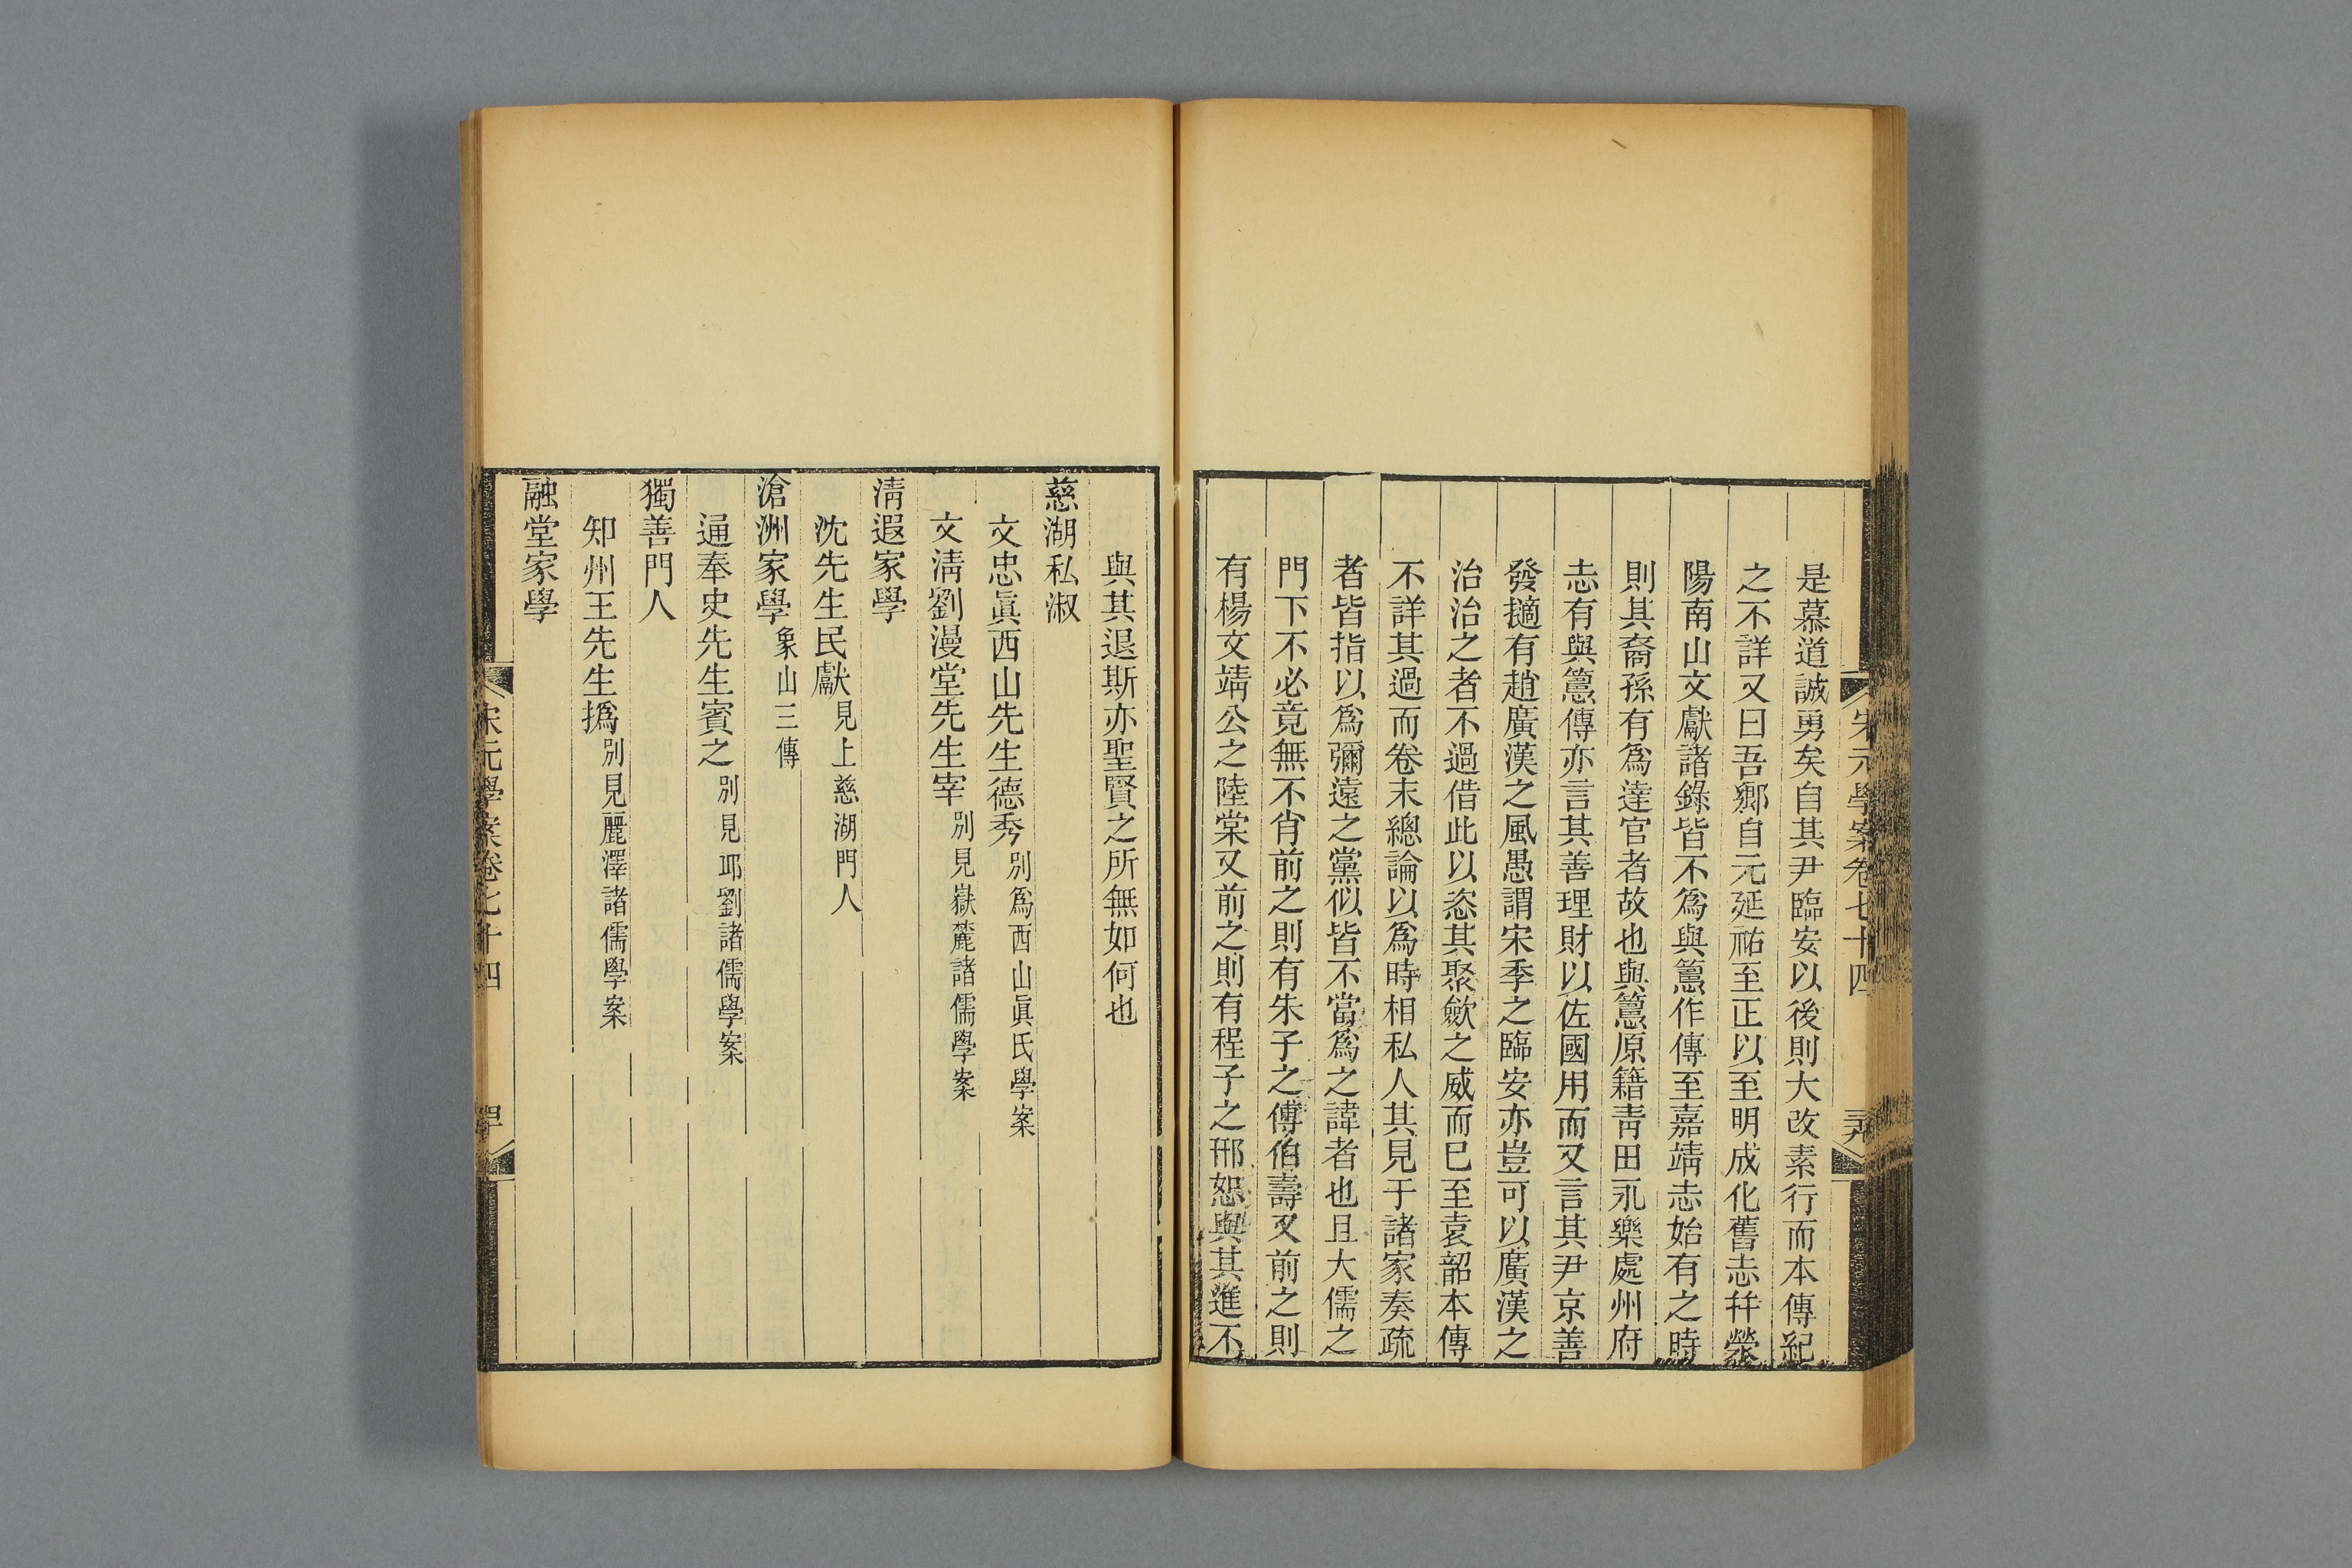 宋元學案卷七十四
是慕道誠勇矣自其尹臨安以後則大改素行而本傳紀
之不詳又曰吾鄉自元延祐至正以至明成化舊志幷滎
陽南山文獻諸錄皆不爲與𥳽作傳至嘉靖志始有之時
則其裔孫有爲達官者故也與𥳽原籍靑田永樂處州府
志有與𥳽傳亦言其善理財以佐國用而又言其尹京善
發擿有趙廣漢之風愚謂宋季之臨安亦豈可以廣漢之
治治之者不過借此以恣其聚歛之威而已至袁韶本傳
不詳其過而卷末總論以爲時相私人其見于諸家奏疏
者皆指以爲彌遠之黨似皆不當爲之諱者也且大儒之
門下不必竟無不肖前之則有朱子之傅伯壽又前之則
有楊文靖公之陸棠又前之則有程子之邢恕與其進不
與其退斯亦聖賢之所無如何也
慈湖私淑
文忠眞西山先生德秀別爲西山眞氏學案
文淸劉漫堂先生宰別見嶽麓諸儒學案
淸遐家學
沈先生民獻見上慈湖門人
滄洲家學象山三傳
通奉史先生賓之別見邱劉諸儒學案
獨善門人
知州王先生撝別見麗澤諸儒學案
融堂家學
宋元學案卷七十四